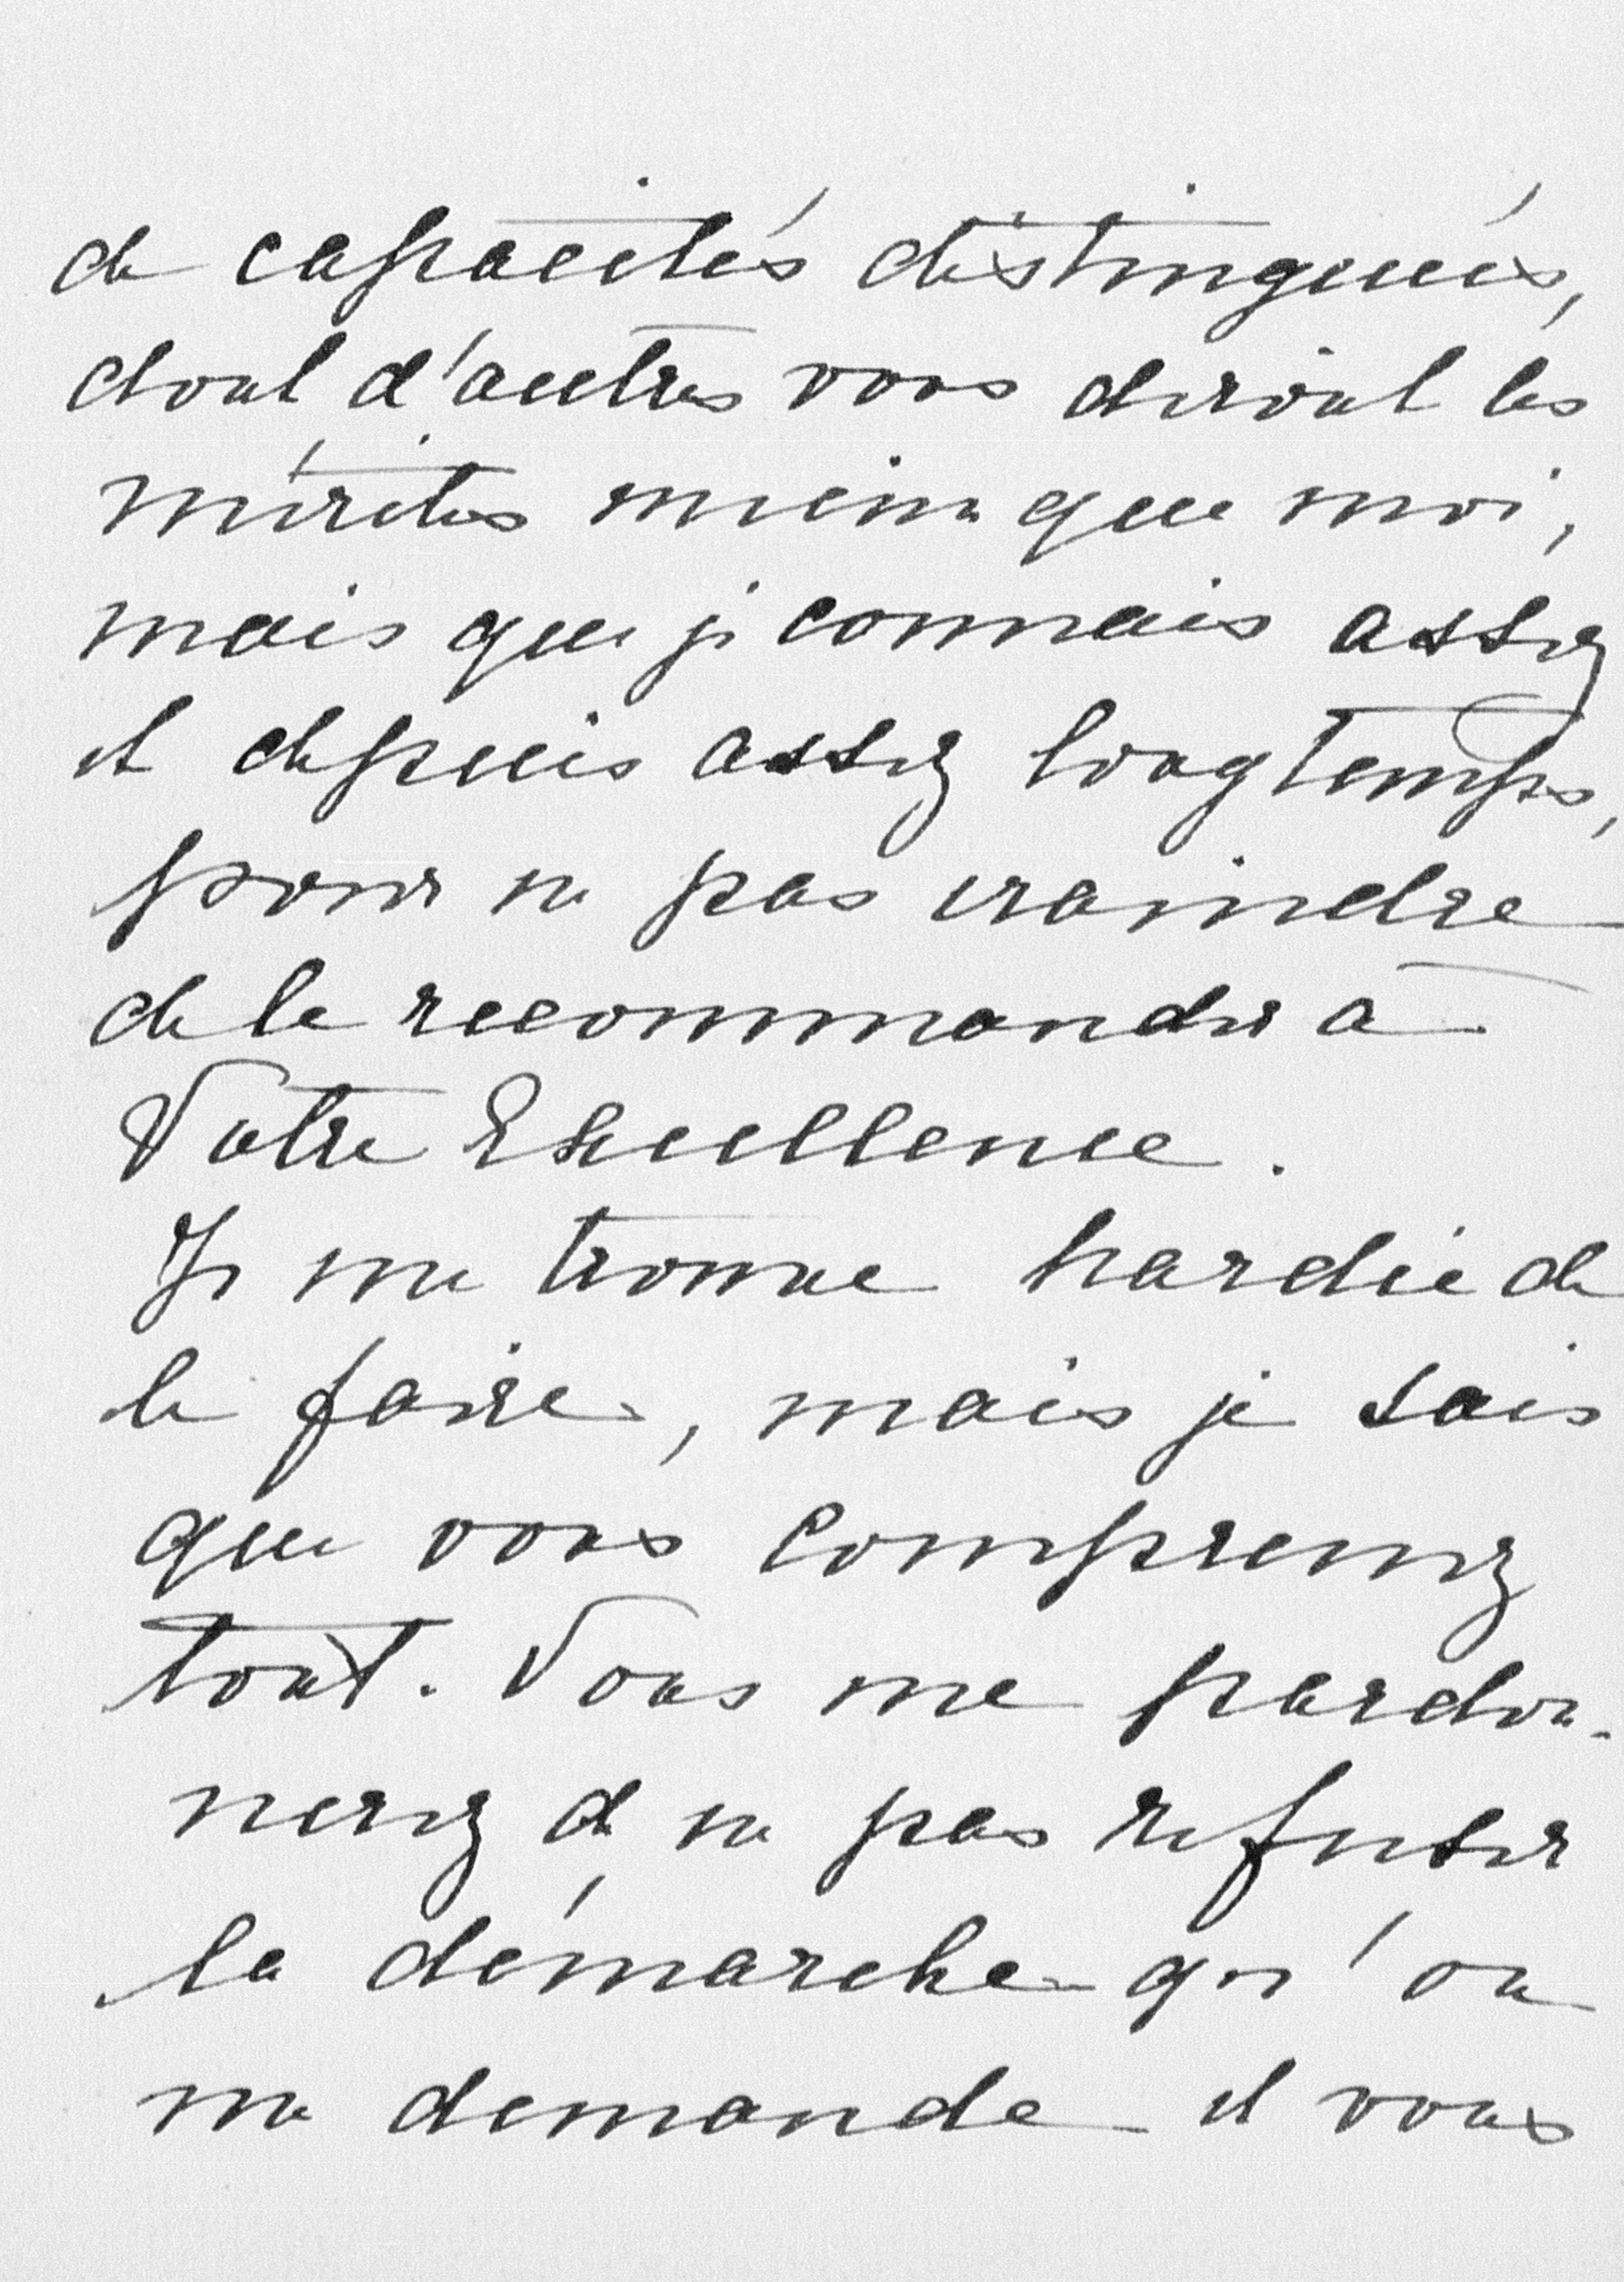 de capacités distinguées,
dont d'autres vous diront les
mérites mieux que moi,
mais que je connais assez
et depuis assez longtemps,
pour ne pas craindre
de le recommander à
Votre Excellence.
Je me trouve hardie de
le faire, mais je sais
que vous comprenez
tout. Vous me pardon-
nerez de ne pas refuser
la démarche qu'on
me demande et vous